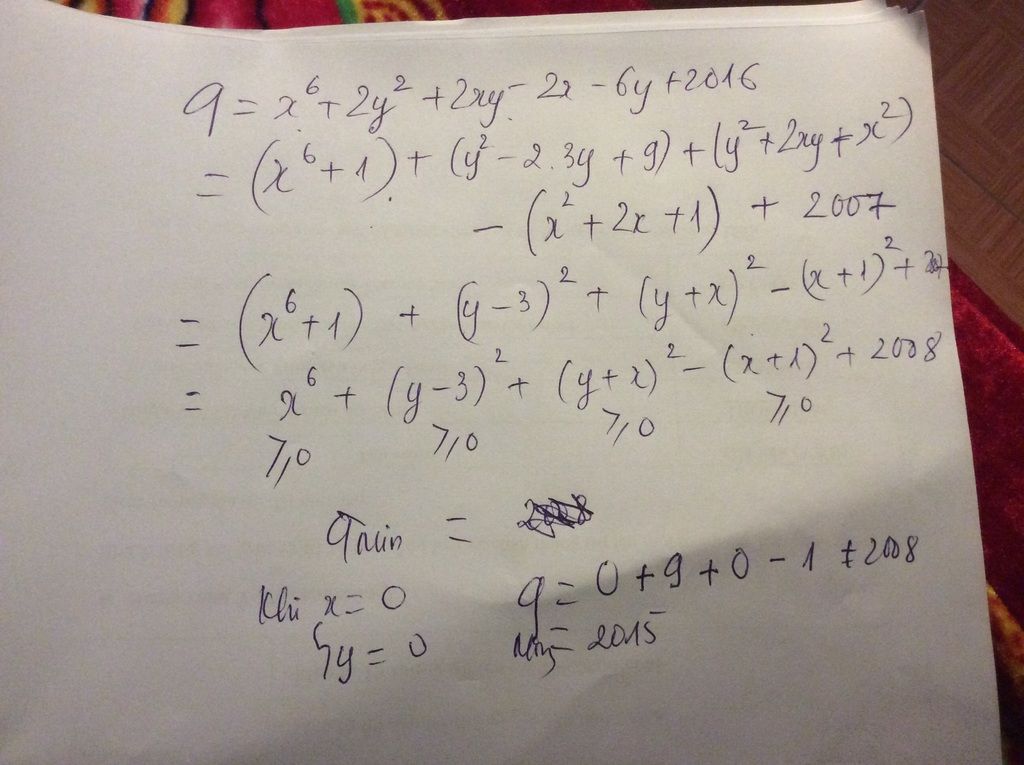 q = x⁶ + 2y² + 2xy - 2x - 6y + 2016
= (x⁶ + 1) + (y² - 2.3y + 9) + (y² + 2xy + x²)
- (x² + 2x + 1) + 2007
= (x⁶ + 1) + (y - 3)² + (y + x)² - (x + 1)² +
= x⁶ + (y - 3)² + (y + x)² - (x + 1)² + 2008
≥0 ≥0 ≥0 ≥0
q min =
Khi x = 0 q = 0 + 9 + 0 - 1 + 2008
y = 0 min = 2015